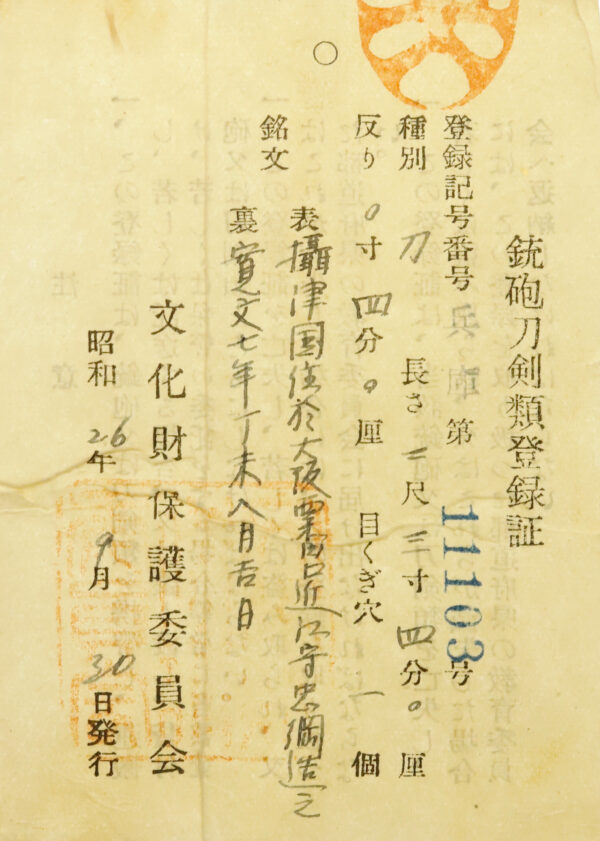 銃砲刀剣類登録証
登録記号番号 兵庫 第 11103 号
種別 刀 長さ 二尺 三寸 四分 o 厘
反り o 寸 四分 o 厘 目くぎ穴 一 個
銘文
表 攝津国住於大阪粟田口近江守忠綱造之
裏 寛文七年丁未八月吉日
文化財保護委員会
昭和 26 年 9 月 30 日発行